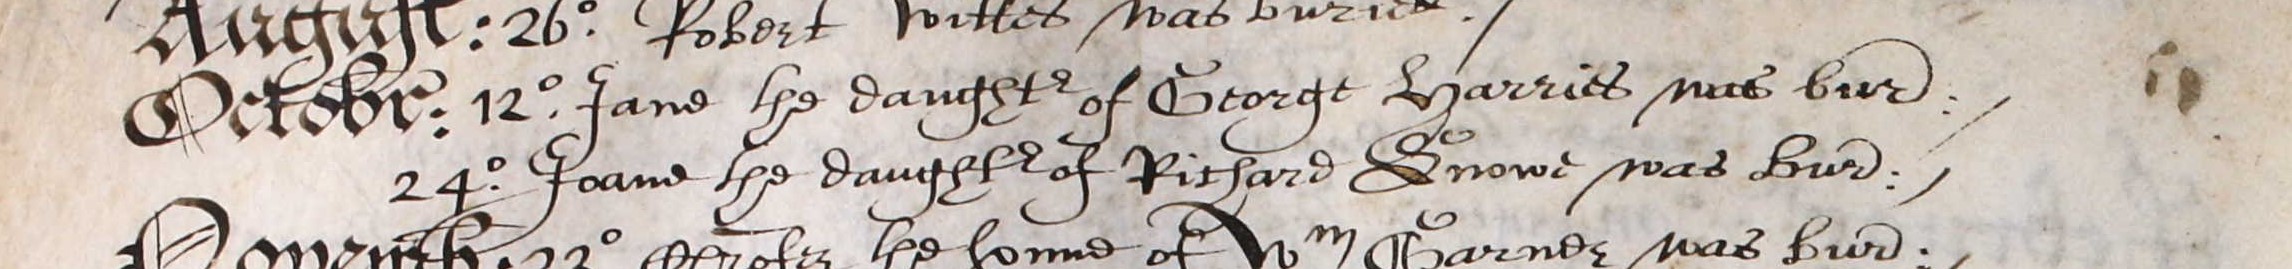 August: 26°. Robert Willes was buried./
Octobr: 12°. Jane the daughtr of George Harries was bur:/
24°. Joane the daughtr of Richard Snowe was bur:/
Novemb: 23° the sonne of Wm Garner was bur:/